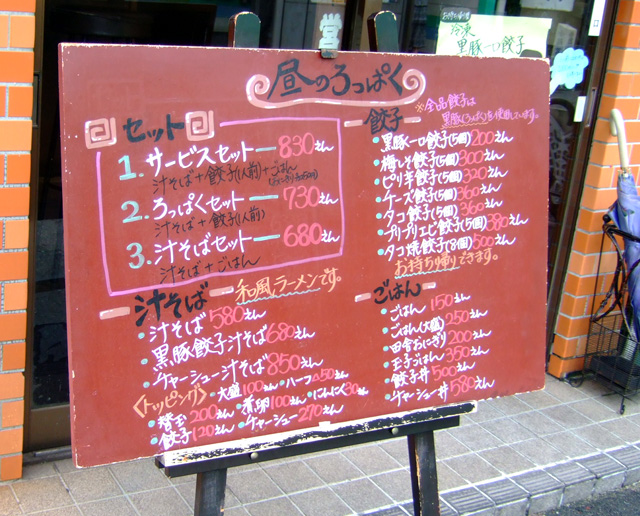 営
冷凍
黒豚一口餃子
昼のろっぱく
セット
1. サービスセット — 830えん
汁そば+餃子(1人前)+ごはん
2. ろっぱくセット — 730えん
汁そば+餃子(1人前)
3. 汁そばセット — 680えん
汁そば+ごはん
餃子
※全品餃子は
黒豚(ろっぱく)を使用しています。
黒豚一口餃子(5個)200えん
梅しそ餃子(5個)300えん
ピリ辛餃子(5個)320えん
チーズ餃子(5個)360えん
タコ餃子(5個)360えん
プリプリエビ餃子(5個)380えん
タコ焼餃子(8個)500えん
お持ち帰りできます。
汁そば
和風ラーメンです。
汁そば580えん
黒豚餃子汁そば680えん
チャーシュー汁そば850えん
〈トッピング〉
大盛100えん ハーフ△50えん
替玉200えん 煮卵100えん にんにく30えん
餃子120えん チャーシュー270えん
ごはん
ごはん 150えん
ごはん(大盛)250えん
田舎おにぎり200えん
玉子ごはん350えん
餃子丼500えん
チャーシュー丼580えん